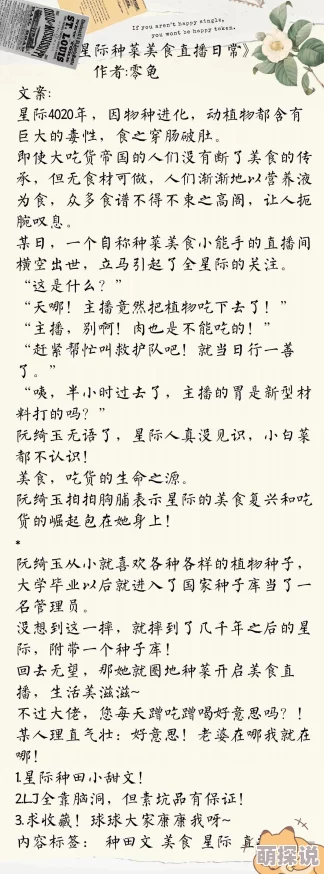 If you aren't happy single,
you wont be happy taken.
ST. LOUIS
星际种菜美食直播日常》
作者:零龟
文案:
星际4020年，因物种进化，动植物都含有
巨大的毒性，食之穿肠破肚。
即使大吃货帝国的人们没有断了美食的传
承，但无食材可做，人们渐渐地以营养液
为食，众多食谱不得不束之高阁，让人扼
腕叹息。
某日，一个自称种菜美食小能手的直播间
横空出世，立马引起了全星际的关注。
“这是什么？”
“天哪！主播竟然把植物吃下去了！”
“主播，别啊！肉也是不能吃的！”
“赶紧帮忙叫救护队吧！就当日行一善
了。”
“咦，半小时过去了，主播的胃是新型材
料打的吗？”
阮绮玉无语了，星际人真没见识，小白菜
都不认识！
美食，吃货的生命之源。
阮绮玉拍拍胸脯表示星际的美食复兴和吃
货的崛起包在她身上！
*
阮绮玉从小就喜欢各种各样的植物种子，
大学毕业以后就进入了国家种子库当了一
名管理员。
没想到这一摔，就摔到了几千年之后的星
际，附带一个种子库！
回去无望，那她就圈地种菜开启美食直
播，生活美滋滋~
不过大佬，您每天蹭吃蹭喝好意思吗？！
某人理直气壮：好意思！老婆在哪我就在
哪！
1.星际种田小甜文！
2.LJ全靠脑洞，但素坑品有保证！
3.求收藏！球球大家康康我呀~
内容标签： 种田文 美食 星际 直
萌探说